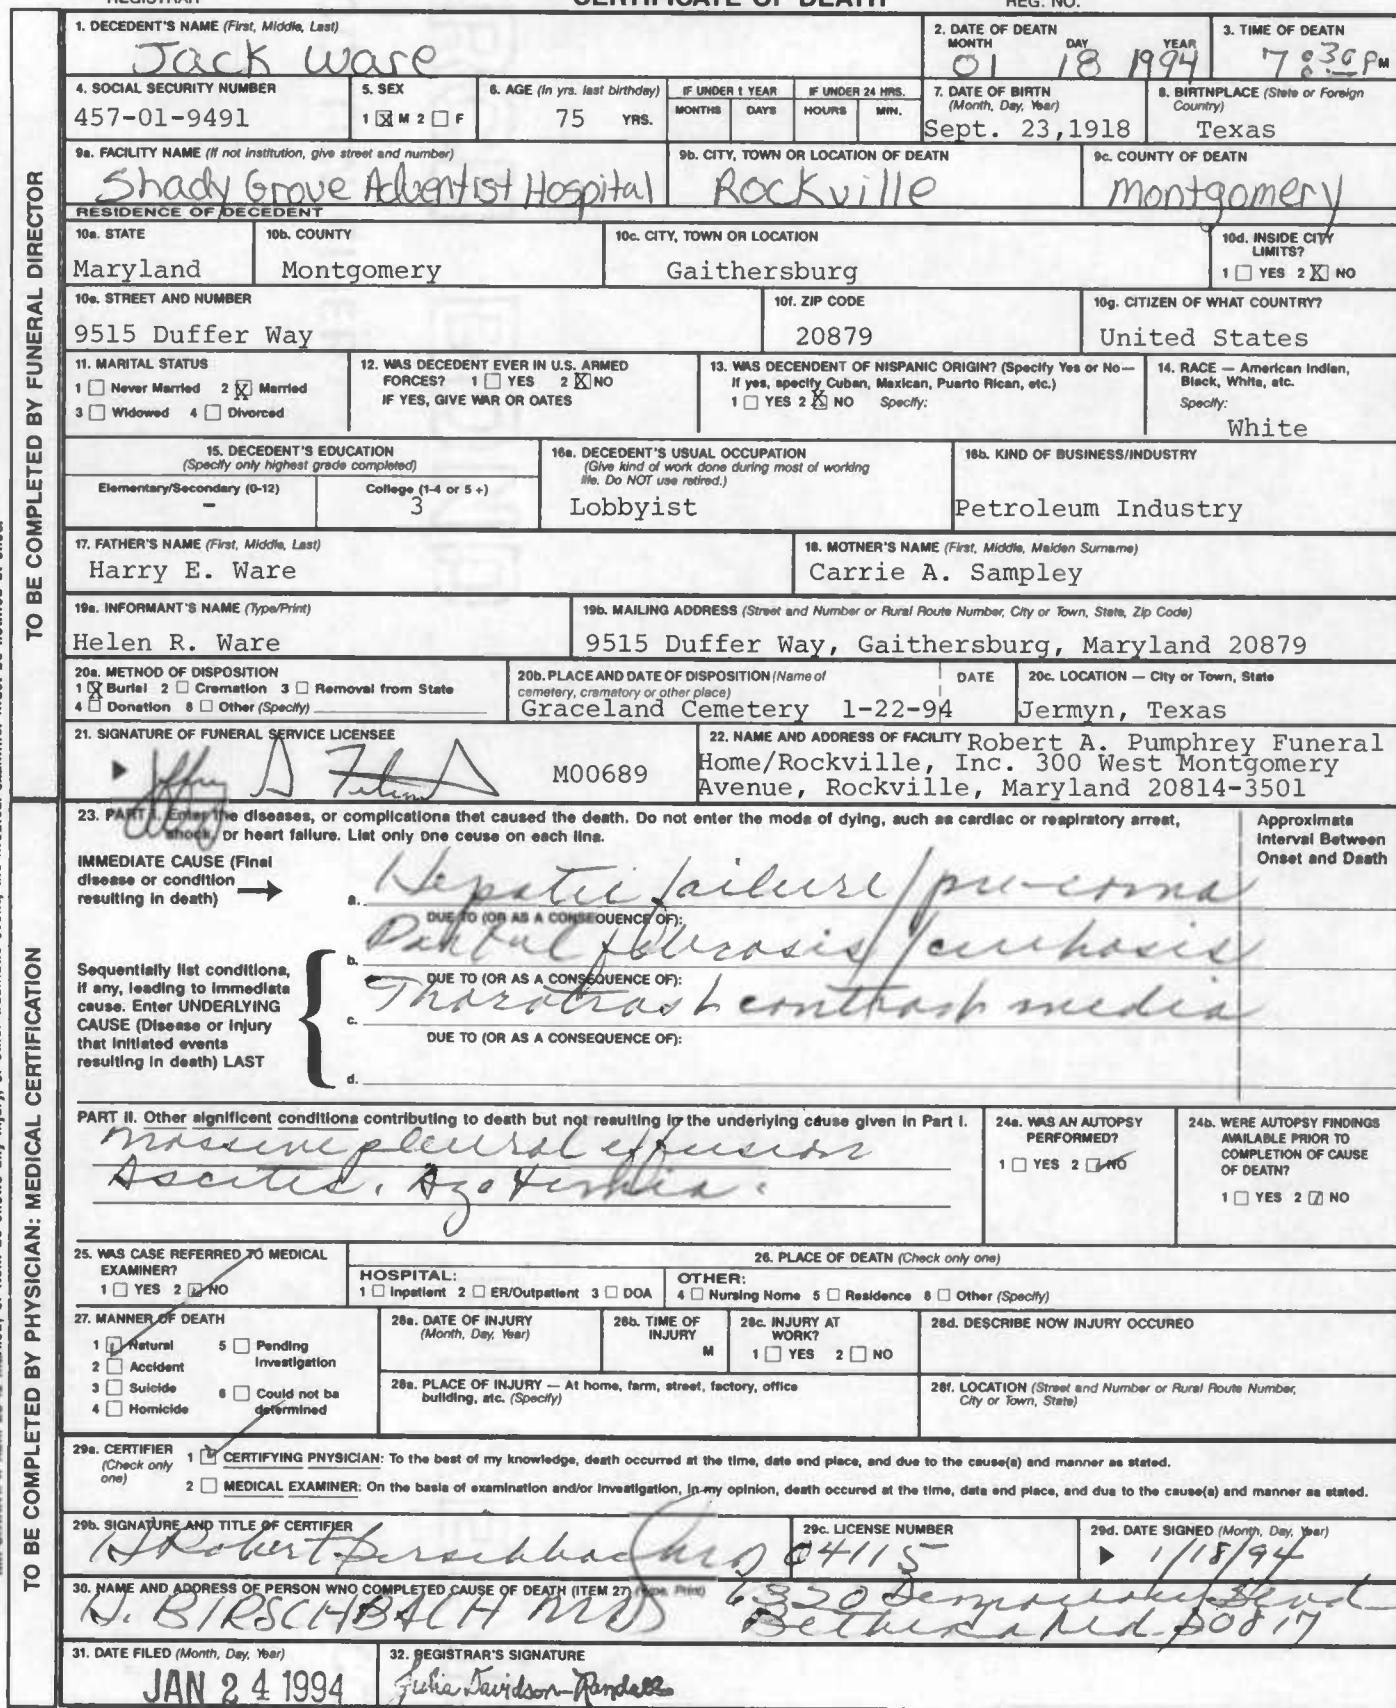 REGISTRAR CERTIFICATE OF DEATH REG. NO.
1. DECEDENT'S NAME (First, Middle, Last)
Jack Ware
2. DATE OF DEATH
MONTH DAY YEAR
01 18 1994
3. TIME OF DEATN
7:30 PM
4. SOCIAL SECURITY NUMBER
457-01-9491
5. SEX
1 ☒ M 2 ☐ F
6. AGE (In yrs. last birthday)
75 YRS.
IF UNDER 1 YEAR
MONTHS DAYS
IF UNDER 24 HRS.
HOURS MIN.
7. DATE OF BIRTN
(Month, Day, Year)
Sept. 23,1918
8. BIRTNPLACE (State or Foreign
Country)
Texas
9a. FACILITY NAME (If not institution, give street and number)
Shady Grove Adventist Hospital
9b. CITY, TOWN OR LOCATION OF DEATH
Rockville
9c. COUNTY OF DEATH
Montgomery
RESIDENCE OF DECEDENT
10a. STATE
Maryland
10b. COUNTY
Montgomery
10c. CITY, TOWN OR LOCATION
Gaithersburg
10d. INSIDE CITY
LIMITS?
1 ☐ YES 2 ☒ NO
10e. STREET AND NUMBER
9515 Duffer Way
10f. ZIP CODE
20879
10g. CITIZEN OF WHAT COUNTRY?
United States
11. MARITAL STATUS
1 ☐ Never Married 2 ☒ Married
3 ☐ Widowed 4 ☐ Divorced
12. WAS DECEDENT EVER IN U.S. ARMED
FORCES? 1 ☐ YES 2 ☒ NO
IF YES, GIVE WAR OR OATES
13. WAS DECENDENT OF NISPANIC ORIGIN? (Specify Yes or No—
If yes, specify Cuban, Maxican, Puarto Rican, etc.)
1 ☐ YES 2 ☒ NO Specify:
14. RACE — American Indien,
Black, Whita, atc.
Specify:
White
15. DECEDENT'S EDUCATION
(Specify only highest grade completed)
Elementary/Secondary (0-12) College (1-4 or 5 +)
- 3
16a. DECEDENT'S USUAL OCCUPATION
(Give kind of work done during most of working
life. Do NOT use retired.)
Lobbyist
16b. KIND OF BUSINESS/INDUSTRY
Petroleum Industry
17. FATHER'S NAME (First, Middle, Last)
Harry E. Ware
18. MOTNER'S NAME (First, Middle, Maiden Surname)
Carrie A. Sampley
19a. INFORMANT'S NAME (Type/Print)
Helen R. Ware
19b. MAILING ADDRESS (Street and Number or Rural Route Number, City or Town, State, Zip Code)
9515 Duffer Way, Gaithersburg, Maryland 20879
20a. METNOD OF DISPOSITION
1 ☒ Burial 2 ☐ Cremation 3 ☐ Removal from State
4 ☐ Donation 8 ☐ Other (Specify)
20b. PLACE AND DATE OF DISPOSITION (Name of
cemetery, crematory or other place) DATE
Graceland Cemetery 1-22-94
20c. LOCATION — City or Town, State
Jermyn, Texas
21. SIGNATURE OF FUNERAL SERVICE LICENSEE
M00689
22. NAME AND ADDRESS OF FACILITY Robert A. Pumphrey Funeral
Home/Rockville, Inc. 300 West Montgomery
Avenue, Rockville, Maryland 20814-3501
TO BE COMPLETED BY FUNERAL DIRECTOR
23. PART I. Enter the diseases, or complications thet caused the death. Do not enter the moda of dying, auch aa cardlac or reapiratory arreat,
shock, or heart failure. Liat only one ceuse on each lina.
Approximata
Interval Between
Onset and Daath
IMMEDIATE CAUSE (Final
disease or condition
resulting in death)
a. Hepatic failure/pre-coma
DUE TO (OR AS A CONSEQUENCE OF):
b. Portal fibrosis/cirrhosis
DUE TO (OR AS A CONSEQUENCE OF):
c. Thorotrast contrast media
DUE TO (OR AS A CONSEQUENCE OF):
d.
Sequentially list conditiona,
if any, leading to immediata
cause. Enter UNDERLYING
CAUSE (Disease or injury
that initiated events
resulting in death) LAST
PART II. Other aignificent conditiona contributing to death but not reaulting in the underlying cause given in Part I.
Massive pleural effusion
Ascites. Azotemia.
24a. WAS AN AUTOPSY
PERFORMED?
1 ☐ YES 2 ☑ NO
24b. WERE AUTOPSY FINDINGS
AVAILABLE PRIOR TO
COMPLETION OF CAUSE
OF DEATN?
1 ☐ YES 2 ☑ NO
25. WAS CASE REFERRED TO MEDICAL
EXAMINER?
1 ☐ YES 2 ☑ NO
26. PLACE OF DEATN (Check only one)
HOSPITAL:
1 ☐ Inpatlent 2 ☐ ER/Outpatlent 3 ☐ DOA
OTHER:
4 ☐ Nursing Nome 5 ☐ Residence 8 ☐ Other (Specify)
27. MANNER OF DEATH
1 ☑ Natural 5 ☐ Pending
Investigation
2 ☐ Accident
3 ☐ Suicide 6 ☐ Could not be
determined
4 ☐ Homicide
28a. DATE OF INJURY
(Month, Day, Year)
28b. TIME OF
INJURY
M
28c. INJURY AT
WORK?
1 ☐ YES 2 ☐ NO
28d. DESCRIBE NOW INJURY OCCUREO
28a. PLACE OF INJURY — At home, farm, street, factory, office
building, atc. (Specify)
28f. LOCATION (Street and Number or Rural Route Number,
City or Town, State)
29a. CERTIFIER
(Check only
one)
1 ☑ CERTIFYING PNYSICIAN: To the best of my knowledge, death occurred at the time, date end place, and due to the cause(a) and manner as stated.
2 ☐ MEDICAL EXAMINER: On the basla of examination and/or investigation, in my opinion, death occured at the time, data end place, and dua to the cause(a) and manner aa stated.
29b. SIGNATURE AND TITLE OF CERTIFIER
H Robert Birschbach MD
29c. LICENSE NUMBER
04115
29d. DATE SIGNED (Month, Day, Year)
1/18/94
30. NAME AND ADDRESS OF PERSON WNO COMPLETED CAUSE OF DEATH (ITEM 27) (Type, Print)
H. BIRSCHBACH MD 6320 Democracy Blvd
Bethesda Md. 20817
31. DATE FILED (Month, Day, Year)
JAN 24 1994
32. REGISTRAR'S SIGNATURE
Julia Davidson-Randall
TO BE COMPLETED BY PHYSICIAN: MEDICAL CERTIFICATION